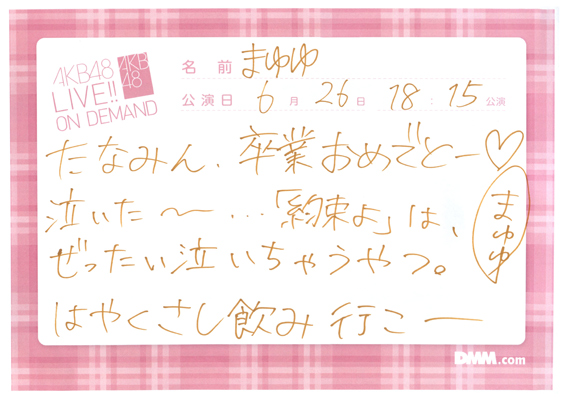 AKB48
LIVE!!
ON DEMAND
AKB
48
名前 まゆゆ
公演日 6月 26日 18:15公演
たなみん、卒業おめでとー♡
泣いた〜…「約束よ」は、
まゆゆ
ぜったい泣いちゃうやつ。
はやくさし飲み行こー
DMM.com